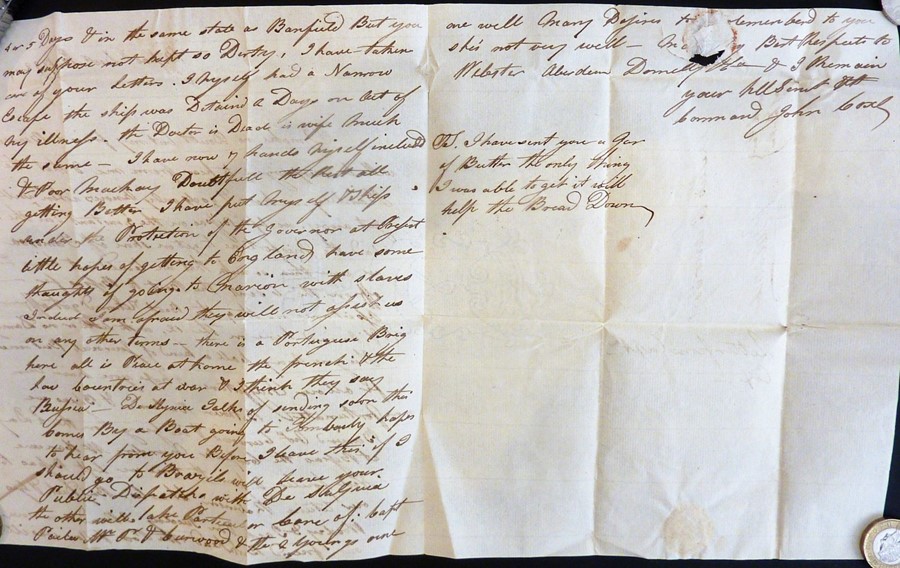 4 or 5 Days & in the same state as Banfield But you
may suppose not kept so Dirty, I have taken
care of your letters. I myself had a Narrow
Escape the ship was Detaind 2 Days on Act of
my illness. the Doctor is Dead is wife much
the same — I have now 7 hands myself includd
& Poor Mackay Doubtfull the Rest all
getting Better I have put myself & Ship
under the Protection of the Governor at Present
little hopes of getting to England have some
thoughts of going to with slaves
Indeed I am afraid they will not assist us
on any other terms — there is a Portuguese Brig
here all is Peace at home the french & the
low Countries at war & I think they say
Russia — Talks of sending soon this
comes By a Boat going to hopes
to hear from you Before I leave this if I
should go to will leave your
Public Dispatchs with De
the other will take Particular Care of. Capt
Mr & & the 2 one
one well Many Desires to remembered to you
she's not very well — my Best Respects to
Webster Aberdein & I Remain
your
Command John Coxe
PS. I have sent you a Jar
of Butter the only thing
I was able to get it will
help the Bread Down